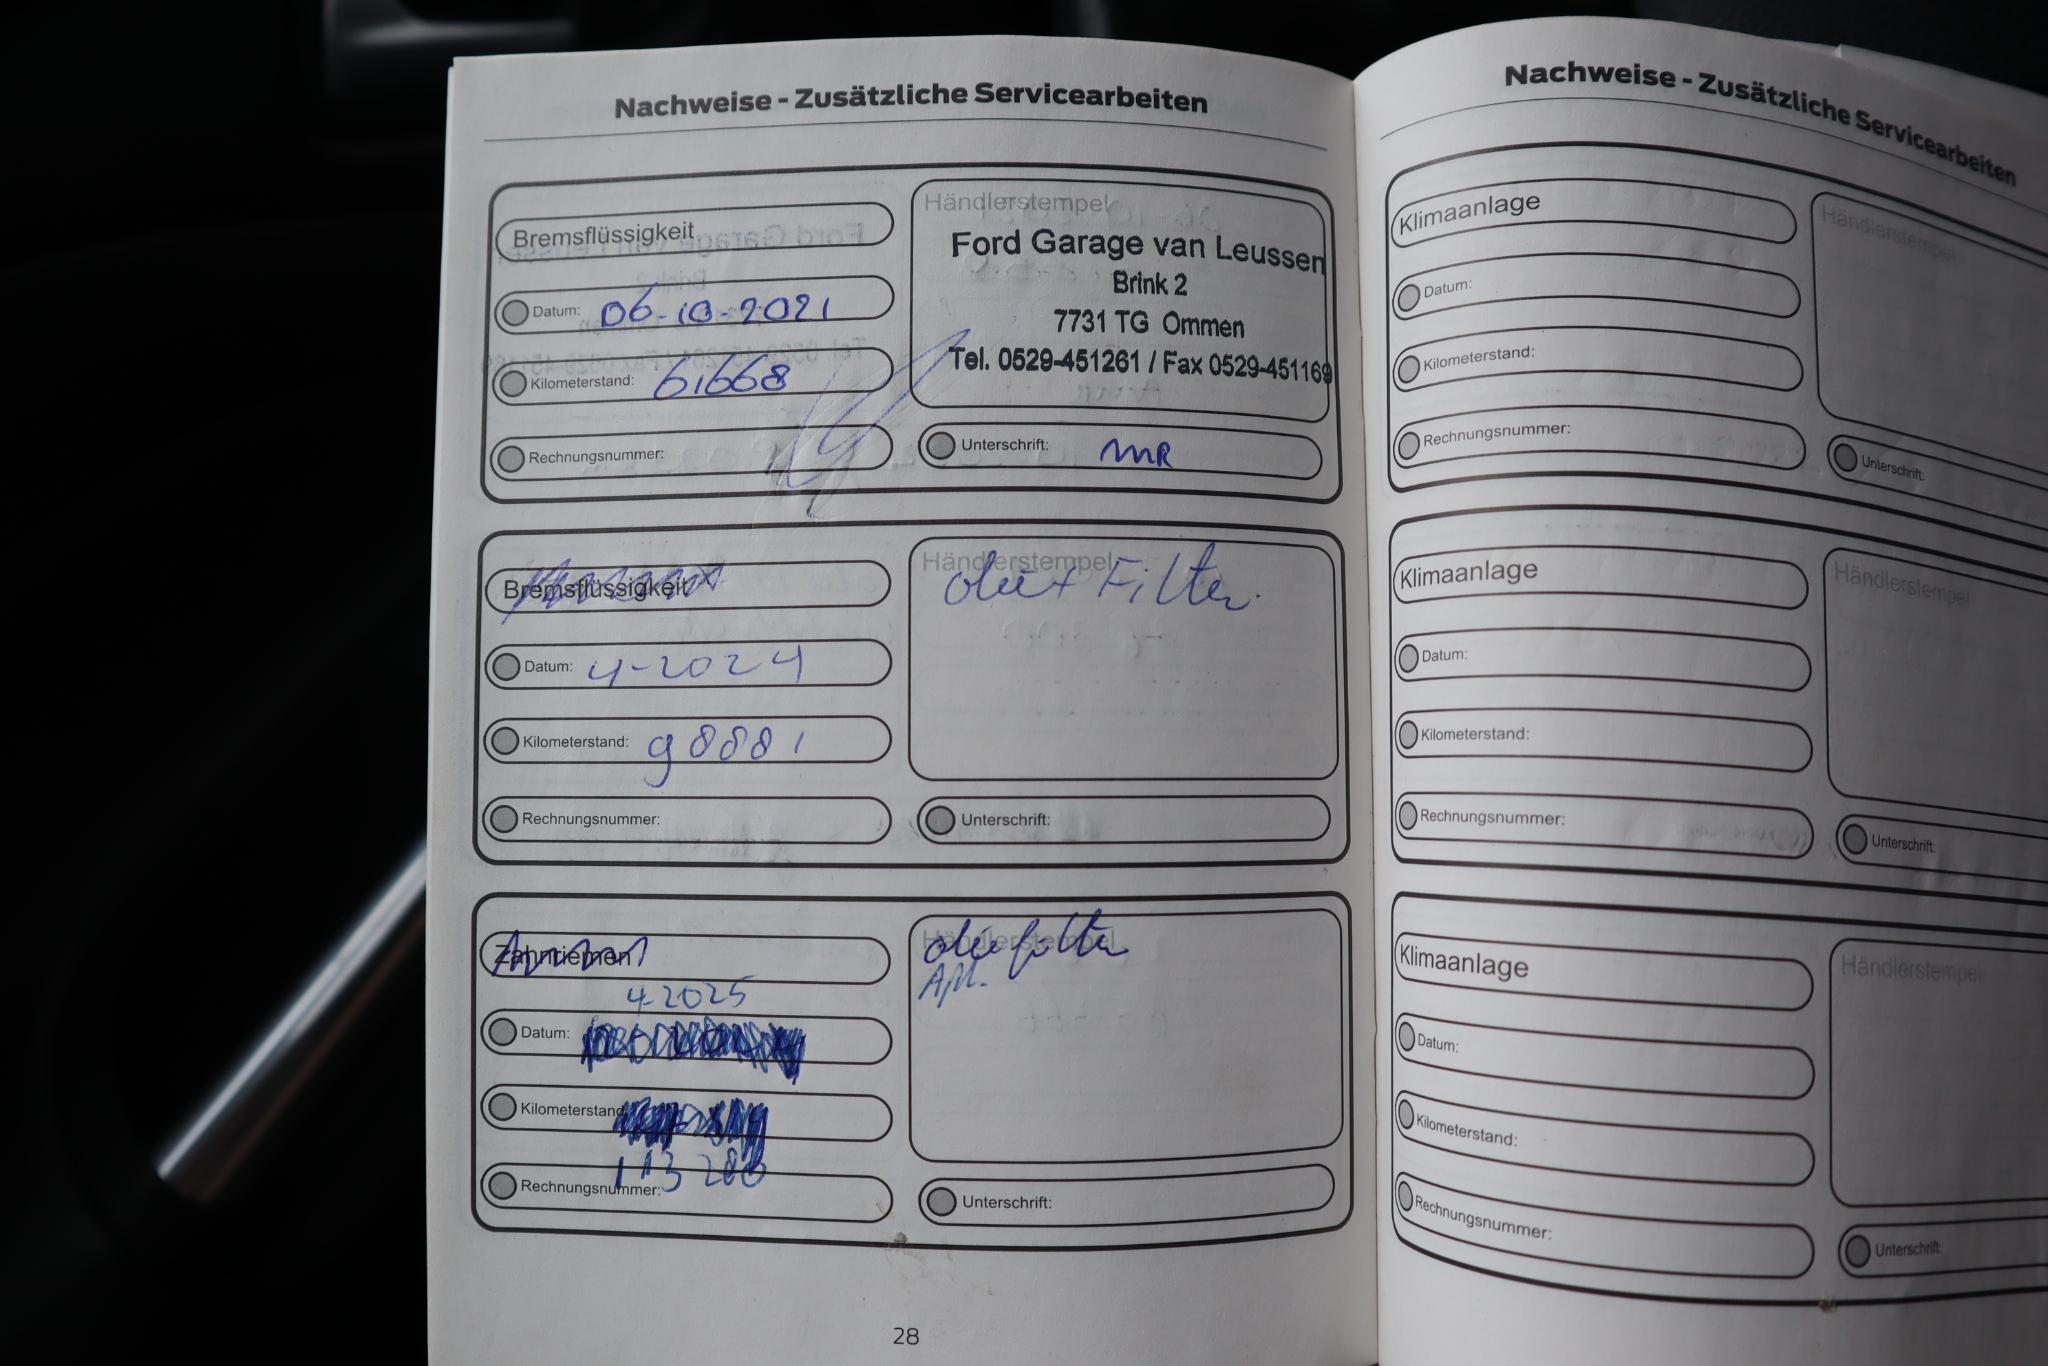 Nachweise - Zusätzliche Servicearbeiten
Bremsflüssigkeit
Datum: 06-10-2021
Kilometerstand: 61668
Rechnungsnummer:
Händlerstempel
Ford Garage van Leussen
Brink 2
7731 TG Ommen
Tel. 0529-451261 / Fax 0529-451169
Unterschrift: MR
Bremsflüssigkeit
Datum: 4-2024
Kilometerstand: 98881
Rechnungsnummer:
Händlerstempel
olie + Filter
Unterschrift:
Zahnriemen
4-2025
Datum:
Kilometerstand
113 200
Rechnungsnummer:
Händlerstempel
olie filter
Unterschrift:
28
Nachweise - Zusätzliche Servicearbeiten
Klimaanlage
Datum:
Kilometerstand:
Rechnungsnummer:
Händlerstempel
Unterschrift:
Klimaanlage
Datum:
Kilometerstand:
Rechnungsnummer:
Händlerstempel
Unterschrift:
Klimaanlage
Datum:
Kilometerstand:
Rechnungsnummer:
Händlerstempel
Unterschrift: